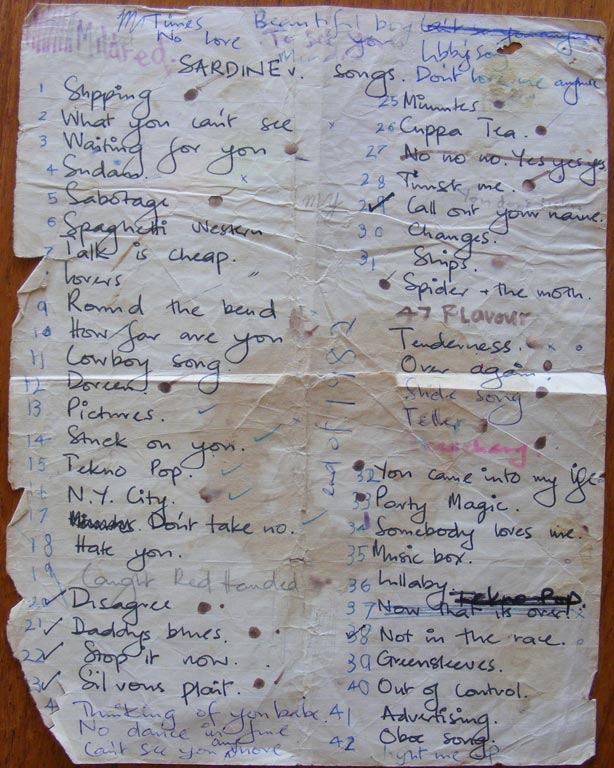 Mr Times Beautiful boy
No love To see you
Mildred. Libby's song
SARDINE v. songs. Dont love me anymore
1 Shpping
2 What you can't see
3 Waiting for you
4 Sudan.
5 Sabotage
6 Spaghetti Western
7 Talk is cheap.
Lovers
9 Round the bend
10 How far are you
11 Cowboy song.
12 Doreen.
13 Pictures.
14 Stuck on you.
15 Tekno Pop.
N.Y. City.
17 Don't take no.
18 Hate you.
19 Caught Red Handed
20 Disagree
21 Daddys blues.
22 Stop it now.
23 Sil vous plait.
Thinking of you babe.
No dance in me
Can't see you anymore
end of 1982
25 Minutes
26 Cuppa Tea.
27 No no no. Yes yes yes
28 Trust me.
29 Call out your name.
30 Changes.
31 Ships.
Spider + the moth.
47 Flavour
Tenderness.
Over again.
Slide song
32 You came into my life
33 Party Magic.
34 Somebody loves me.
35 Music box.
36 Lullaby. Tekno Pop.
37 Now that its over!
38 Not in the race.
39 Greensleeves.
40 Out of control.
41 Advertising.
42 Oboe song.
Light me up